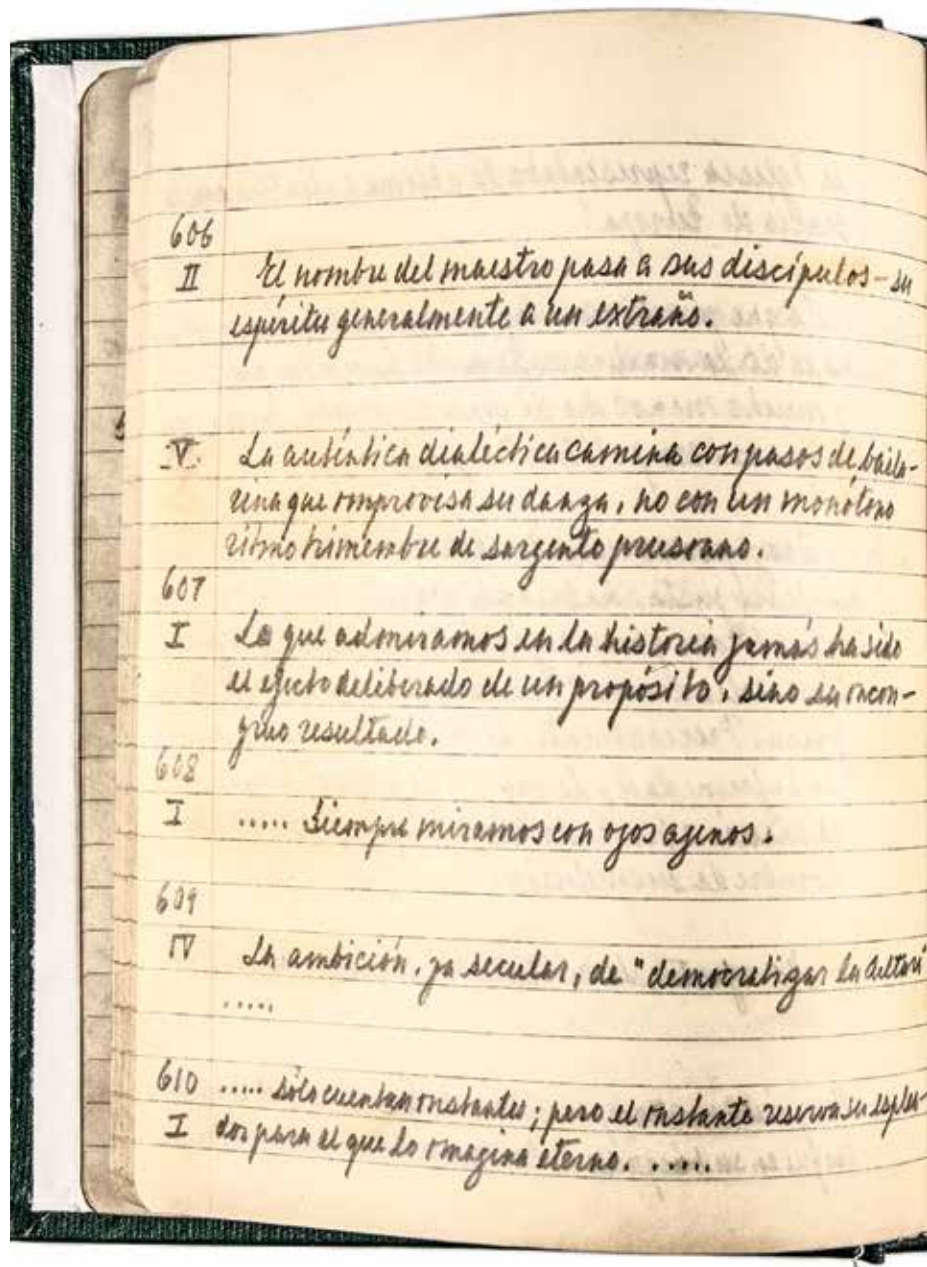 606
II El nombre del maestro pasa a sus discípulos – su
espíritu generalmente a un extraño.
V La auténtica dialéctica camina con pasos de baila-
rina que improvisa su danza, no con un monótono
ritmo trimembre de sargento prusiano.
607
I Lo que admiramos en la historia jamás ha sido
el efecto deliberado de un propósito, sino su incon-
gruo resultado.
608
I ..... Siempre miramos con ojos agenos.
609
IV La ambición, ya secular, de "democratizar la
.....
610 ..... sólo cuentan instantes; pero el instante reserva su esplen-
I dor para el que lo imagina eterno. .....